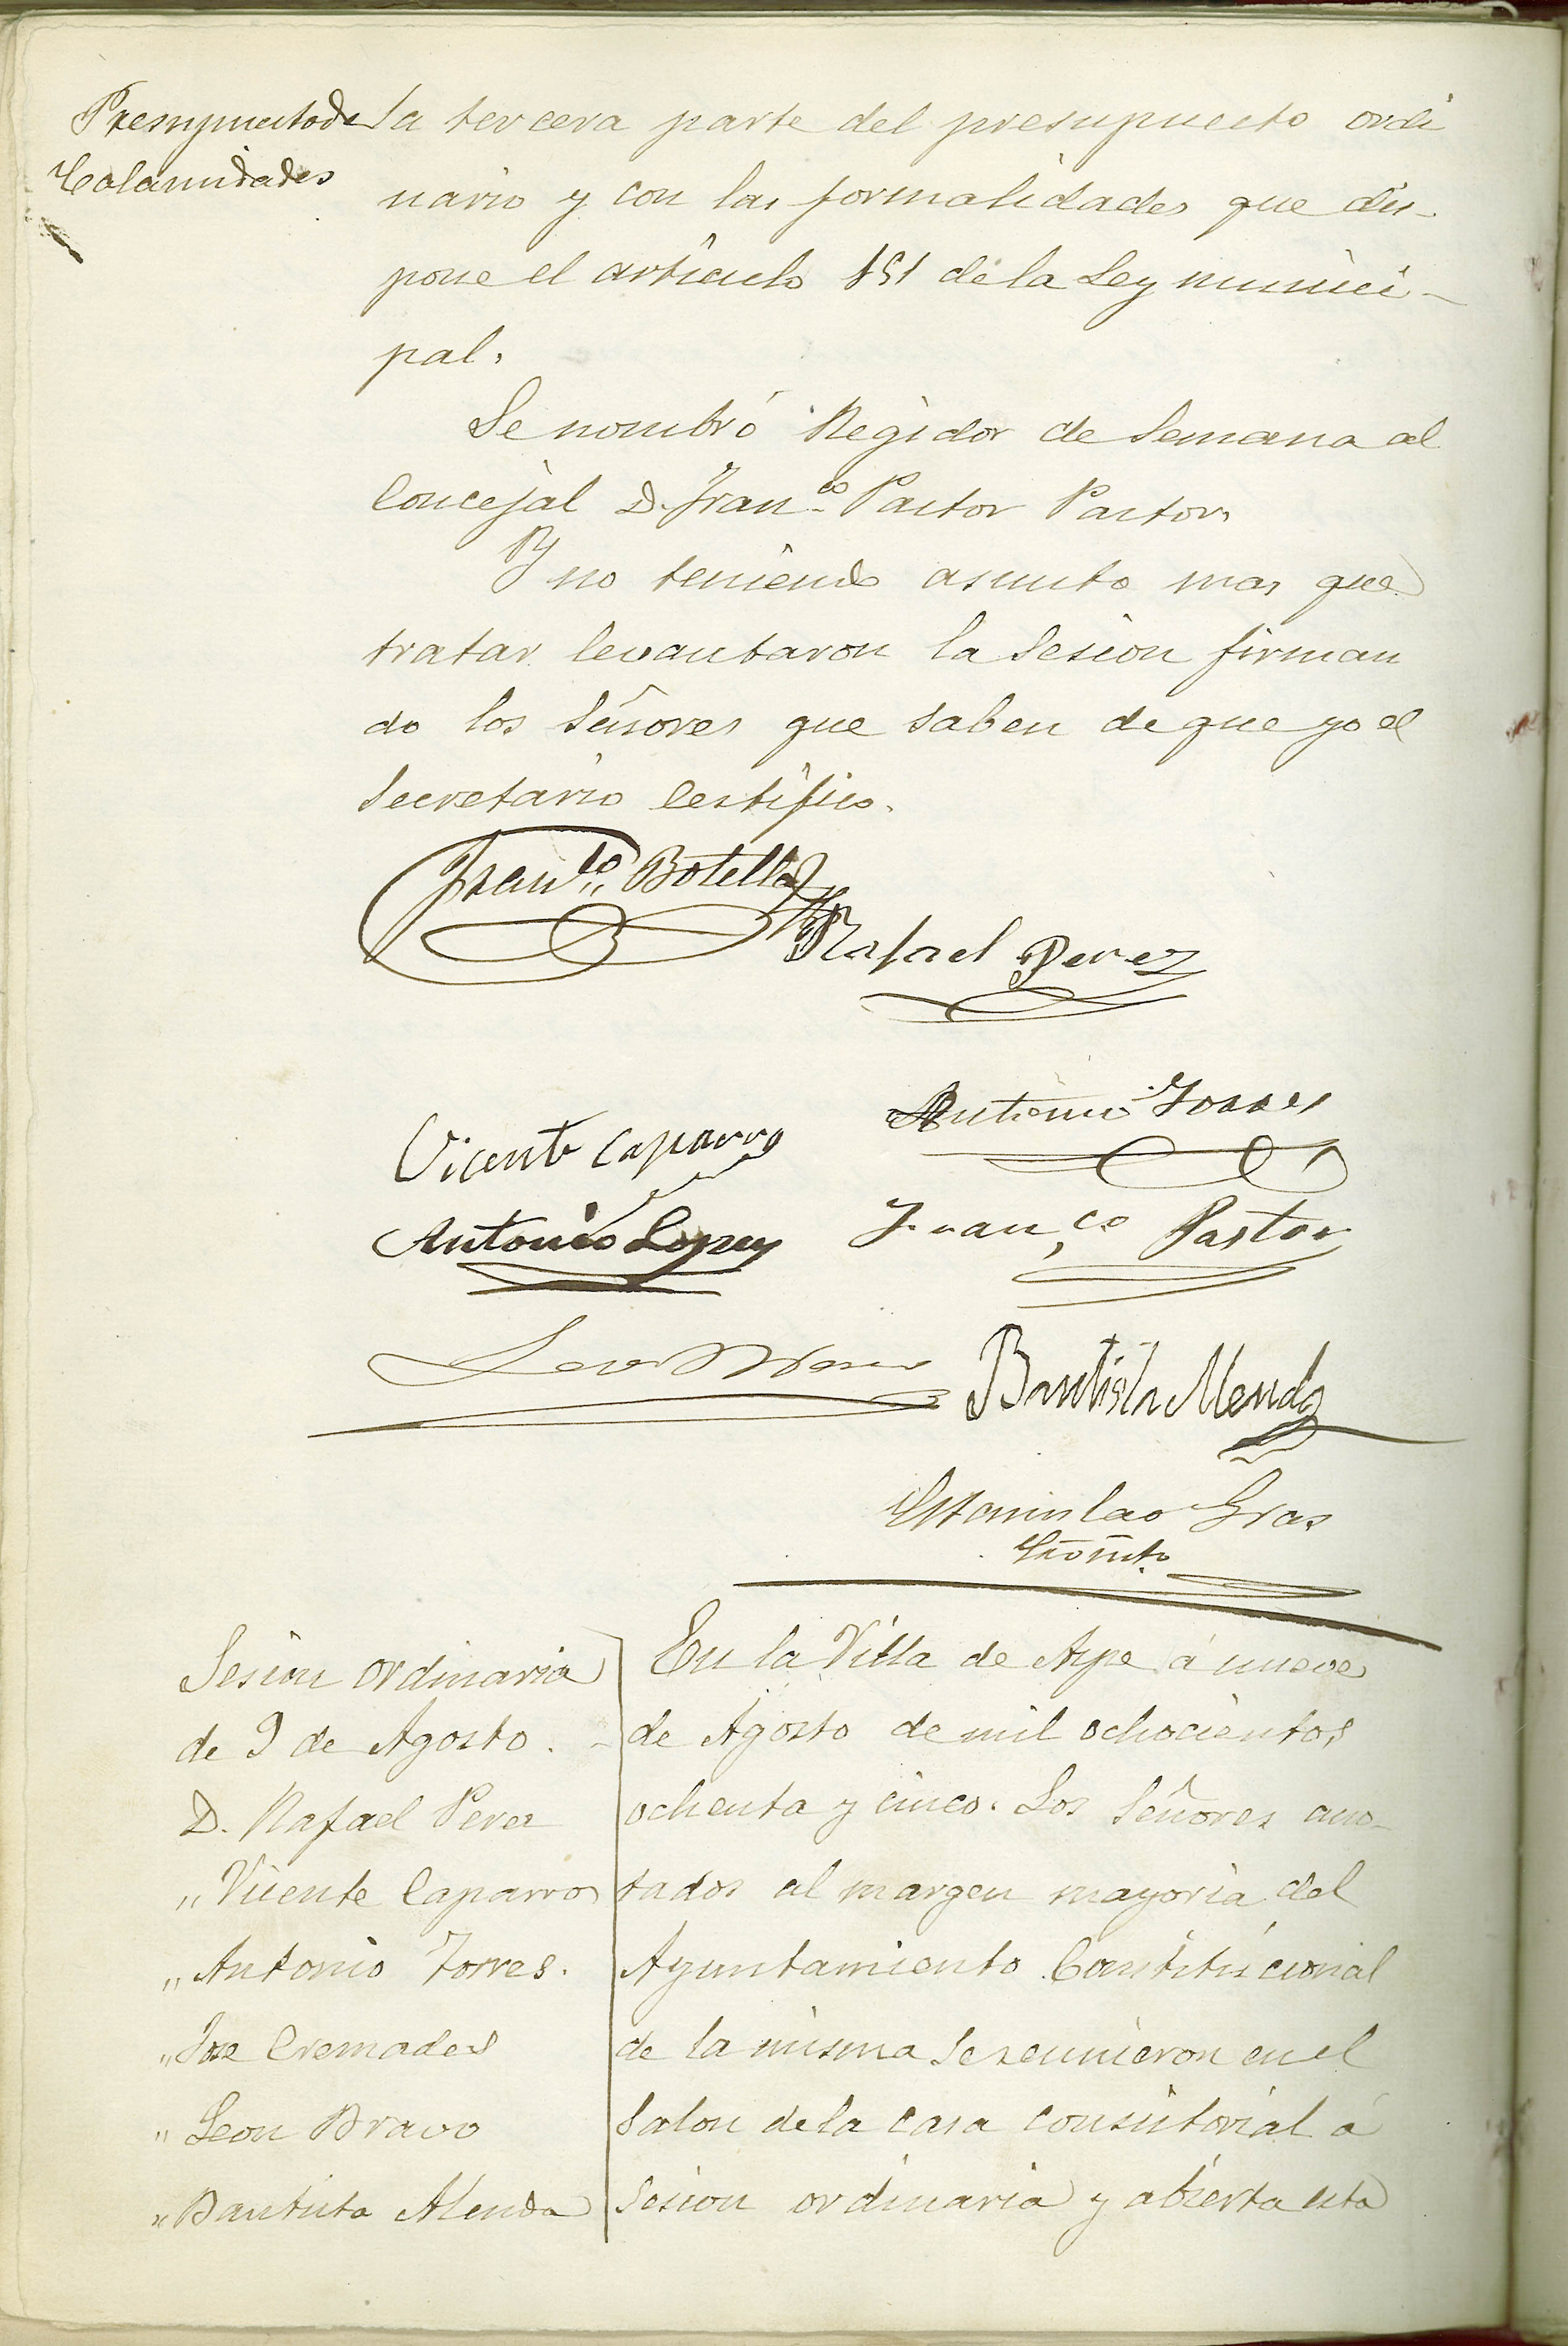 Presupuesto de
Calamidades
la tercera parte del presupuesto ordi
nario y con las formalidades que dis-
pone el artículo 151 de la Ley munici-
pal.
Se nombró Regidor de Semana al
Concejal D. Fran.co Pastor Pastor.
Y no teniendo asunto mas que
tratar levantaron la Sesion firman
do los Señores que saben de que yo el
Secretario Certifico.
Fran.co Botella
Rafael Perez
Antonio Torres
Vicente Caparros
Antonio Lopez
Fran.co Pastor
Leon Bravo
Bautista Alenda
Estanislao Gras
Sesion ordinaria
de 9 de Agosto.
D. Rafael Perez
„ Vicente Caparros
„ Antonio Torres.
„ Jose Cremades
„ Leon Bravo
„ Bautista Alenda
En la Villa de Aspe á nueve
de Agosto de mil ochocientos
ochenta y cinco. Los Señores ano-
tados al margen mayoria del
Ayuntamiento Constitucional
de la misma se reunieron en el
Salon de la casa consistorial á
sesion ordinaria y abierta esta